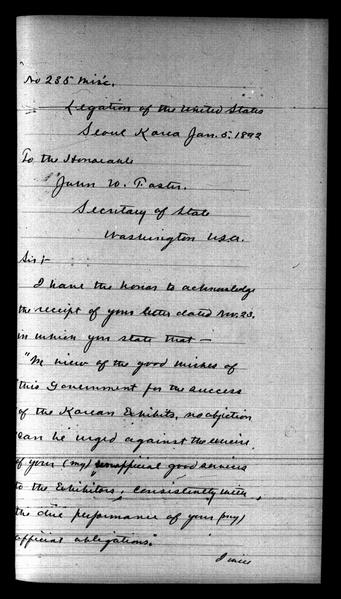 No 285 Misc.
Legation of the United States
Seoul Korea Jan. 5. 1892
To the Honorable
John W. Foster.
Secretary of State
Washington U.S.A.
Sir:-
I have the honor to acknowledge
the receipt of your letter dated Nov. 23.
in which you state that -
"In view of the good wishes of
this Government for the success
of the Korean Exhibits, no objection
can be urged against the exercise
of your (my) unofficial good services
to the Exhibitors, consistently with
the due performance of your (my)
official obligations."
I will